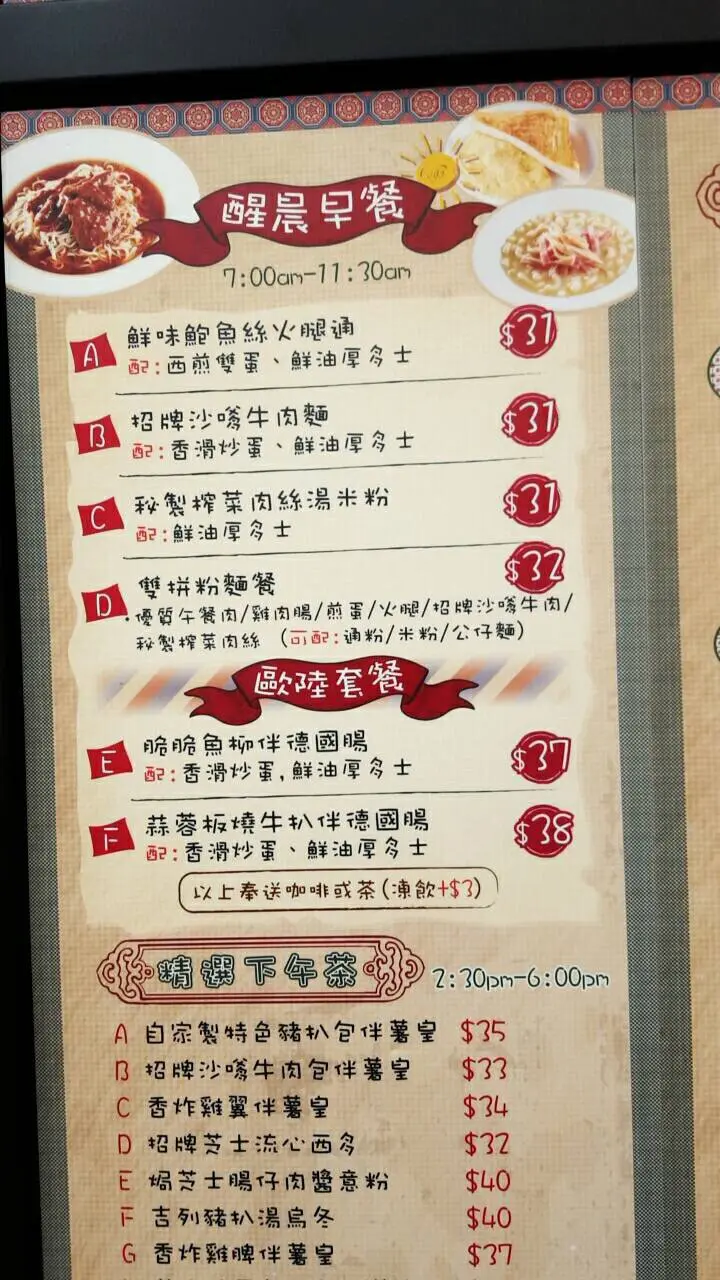 醒晨早餐
7:00am-11:30am
A 鮮味鮑魚絲火腿通 $31
配:西煎雙蛋、鮮油厚多士
B 招牌沙嗲牛肉麵 $31
配:香滑炒蛋、鮮油厚多士
C 秘製榨菜肉絲湯米粉 $31
配:鮮油厚多士
D 雙拼粉麵餐 $32
·優質午餐肉/雞肉腸/煎蛋/火腿/招牌沙嗲牛肉/
秘製榨菜肉絲 (可配:通粉/米粉/公仔麵)
歐陸套餐
E 脆脆魚柳伴德國腸 $37
配:香滑炒蛋,鮮油厚多士
F 蒜蓉板燒牛扒伴德國腸 $38
配:香滑炒蛋、鮮油厚多士
以上奉送咖啡或茶(凍飲+$3)
精選下午茶 2:30pm-6:00pm
A 自家製特色豬扒包伴薯皇 $35
B 招牌沙嗲牛肉包伴薯皇 $33
C 香炸雞翼伴薯皇 $34
D 招牌芝士流心西多 $32
E 焗芝士腸仔肉醬意粉 $40
F 吉列豬扒湯烏冬 $40
G 香炸雞脾伴薯皇 $37